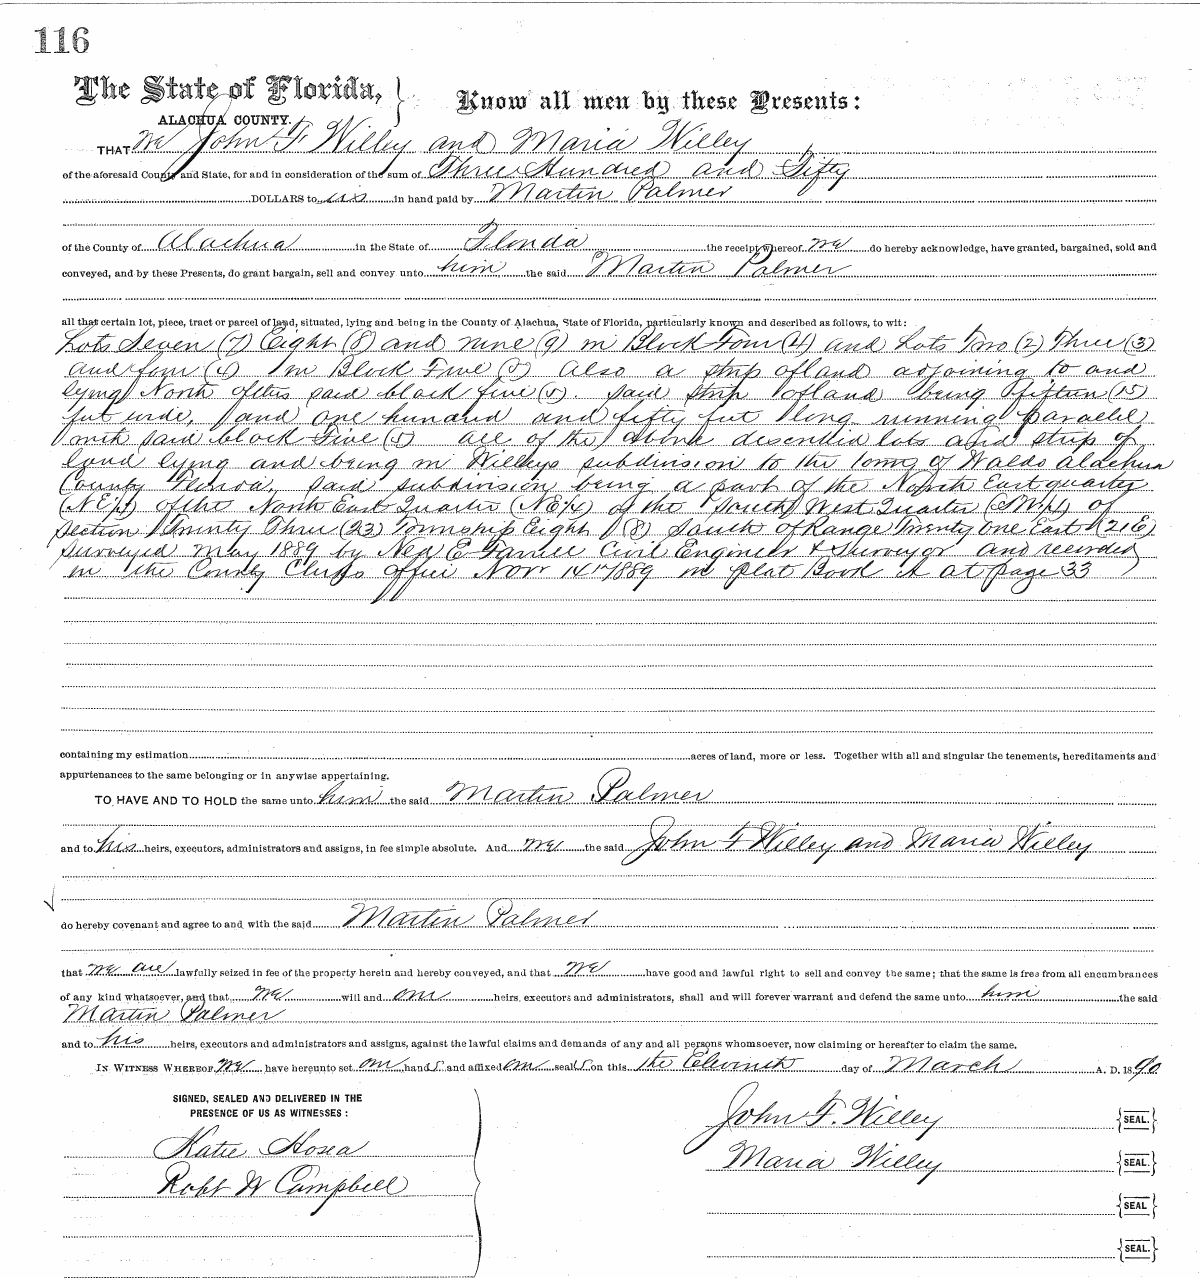 116
The State of Florida,
ALACHUA COUNTY.
Know all men by these Presents:
THAT We John F Willey and Maria Willey
of the aforesaid County and State, for and in consideration of the sum of Three Hundred and Fifty
DOLLARS to us in hand paid by Martin Palmer
of the County of Alachua in the State of Florida the receipt whereof we do hereby acknowledge, have granted, bargained, sold and
conveyed, and by these Presents, do grant bargain, sell and convey unto him the said Martin Palmer
all that certain lot, piece, tract or parcel of land, situated, lying and being in the County of Alachua, State of Florida, particularly known and described as follows, to wit:
Lots Seven (7) Eight (8) and nine (9) in Block Four (4) and Lots Two (2) Three (3)
and four (4) in Block Five (5) Also a strip of land adjoining to and
lying North of this said block five (5). said strip of land being fifteen (15)
feet wide, and one hundred and fifty feet long running parallel
with said block Five (5) all of the above described lots and strip of
land lying and being in Willeys subdivision to the town of Waldo Alachua
County Florida, said subdivision being a part of the North East quarter
(NE¼) of the North East Quarter (NE¼) of the South West Quarter (SW¼) of
section Twenty Three (23) Township Eight (8) South of Range Twenty one East (21E)
surveyed May 1889 by Ned E Farrell Civil Engineer & Surveyor and recorded
in the County Clerks office Nov 14" 1889 in plat Book A at page 33
containing my estimation acres of land, more or less. Together with all and singular the tenements, hereditaments and
appurtenances to the same belonging or in anywise appertaining.
TO HAVE AND TO HOLD the same unto him the said Martin Palmer
and to his heirs, executors, administrators and assigns, in fee simple absolute. And we the said John F Willey and Maria Willey
do hereby covenant and agree to and with the said Martin Palmer
that we are lawfully seized in fee of the property herein and hereby conveyed, and that we have good and lawful right to sell and convey the same; that the same is free from all encumbrances
of any kind whatsoever, and that we will and our heirs, executors and administrators, shall and will forever warrant and defend the same unto him the said
Martin Palmer
and to his heirs, executors and administrators and assigns, against the lawful claims and demands of any and all persons whomsoever, now claiming or hereafter to claim the same.
IN WITNESS WHEREOF we have hereunto set our hands and affixed our seals on this the Eleventh day of March A. D. 1890
SIGNED, SEALED AND DELIVERED IN THE
PRESENCE OF US AS WITNESSES:
John F. Willey {SEAL.}
Katie Hosea
Maria Willey {SEAL.}
Robt W Campbell
{SEAL}
{SEAL.}